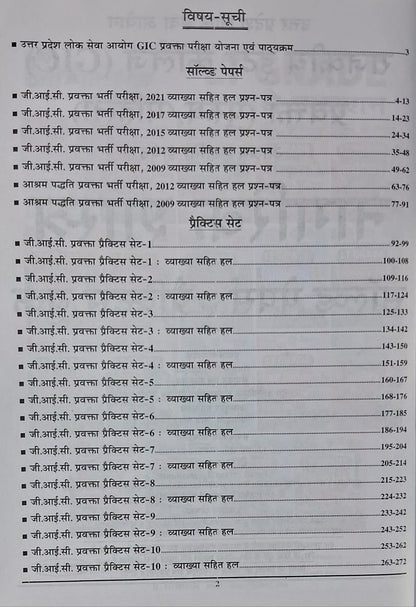 विषय-सूची
■ उत्तर प्रदेश लोक सेवा आयोग GIC प्रवक्ता परीक्षा योजना एवं पाठ्यक्रम 3
सॉल्व्ड पेपर्स
■ जी.आई.सी. प्रवक्ता भर्ती परीक्षा, 2021 व्याख्या सहित हल प्रश्न-पत्र 4-13
■ जी.आई.सी. प्रवक्ता भर्ती परीक्षा, 2017 व्याख्या सहित हल प्रश्न-पत्र 14-23
■ जी.आई.सी. प्रवक्ता भर्ती परीक्षा, 2015 व्याख्या सहित हल प्रश्न-पत्र 24-34
■ जी.आई.सी. प्रवक्ता भर्ती परीक्षा, 2012 व्याख्या सहित हल प्रश्न-पत्र 35-48
■ जी.आई.सी. प्रवक्ता भर्ती परीक्षा, 2009 व्याख्या सहित हल प्रश्न-पत्र 49-62
■ आश्रम पद्धति प्रवक्ता भर्ती परीक्षा, 2012 व्याख्या सहित हल प्रश्न-पत्र 63-76
■ आश्रम पद्धति प्रवक्ता भर्ती परीक्षा, 2009 व्याख्या सहित हल प्रश्न-पत्र 77-91
प्रैक्टिस सेट
■ जी.आई.सी. प्रवक्ता प्रैक्टिस सेट-1 92-99
■ जी.आई.सी. प्रवक्ता प्रैक्टिस सेट-1 : व्याख्या सहित हल 100-108
■ जी.आई.सी. प्रवक्ता प्रैक्टिस सेट-2 109-116
■ जी.आई.सी. प्रवक्ता प्रैक्टिस सेट-2 : व्याख्या सहित हल 117-124
■ जी.आई.सी. प्रवक्ता प्रैक्टिस सेट-3 125-133
■ जी.आई.सी. प्रवक्ता प्रैक्टिस सेट-3 : व्याख्या सहित हल 134-142
■ जी.आई.सी. प्रवक्ता प्रैक्टिस सेट-4 143-150
■ जी.आई.सी. प्रवक्ता प्रैक्टिस सेट-4 : व्याख्या सहित हल 151-159
■ जी.आई.सी. प्रवक्ता प्रैक्टिस सेट-5 160-167
■ जी.आई.सी. प्रवक्ता प्रैक्टिस सेट-5 : व्याख्या सहित हल 168-176
■ जी.आई.सी. प्रवक्ता प्रैक्टिस सेट-6 177-185
■ जी.आई.सी. प्रवक्ता प्रैक्टिस सेट-6 : व्याख्या सहित हल 186-194
■ जी.आई.सी. प्रवक्ता प्रैक्टिस सेट-7 195-204
■ जी.आई.सी. प्रवक्ता प्रैक्टिस सेट-7 : व्याख्या सहित हल 205-214
■ जी.आई.सी. प्रवक्ता प्रैक्टिस सेट-8 215-223
■ जी.आई.सी. प्रवक्ता प्रैक्टिस सेट-8 : व्याख्या सहित हल 224-232
■ जी.आई.सी. प्रवक्ता प्रैक्टिस सेट-9 233-242
■ जी.आई.सी. प्रवक्ता प्रैक्टिस सेट-9 : व्याख्या सहित हल 243-252
■ जी.आई.सी. प्रवक्ता प्रैक्टिस सेट-10 253-262
■ जी.आई.सी. प्रवक्ता प्रैक्टिस सेट-10 : व्याख्या सहित हल 263-272
2